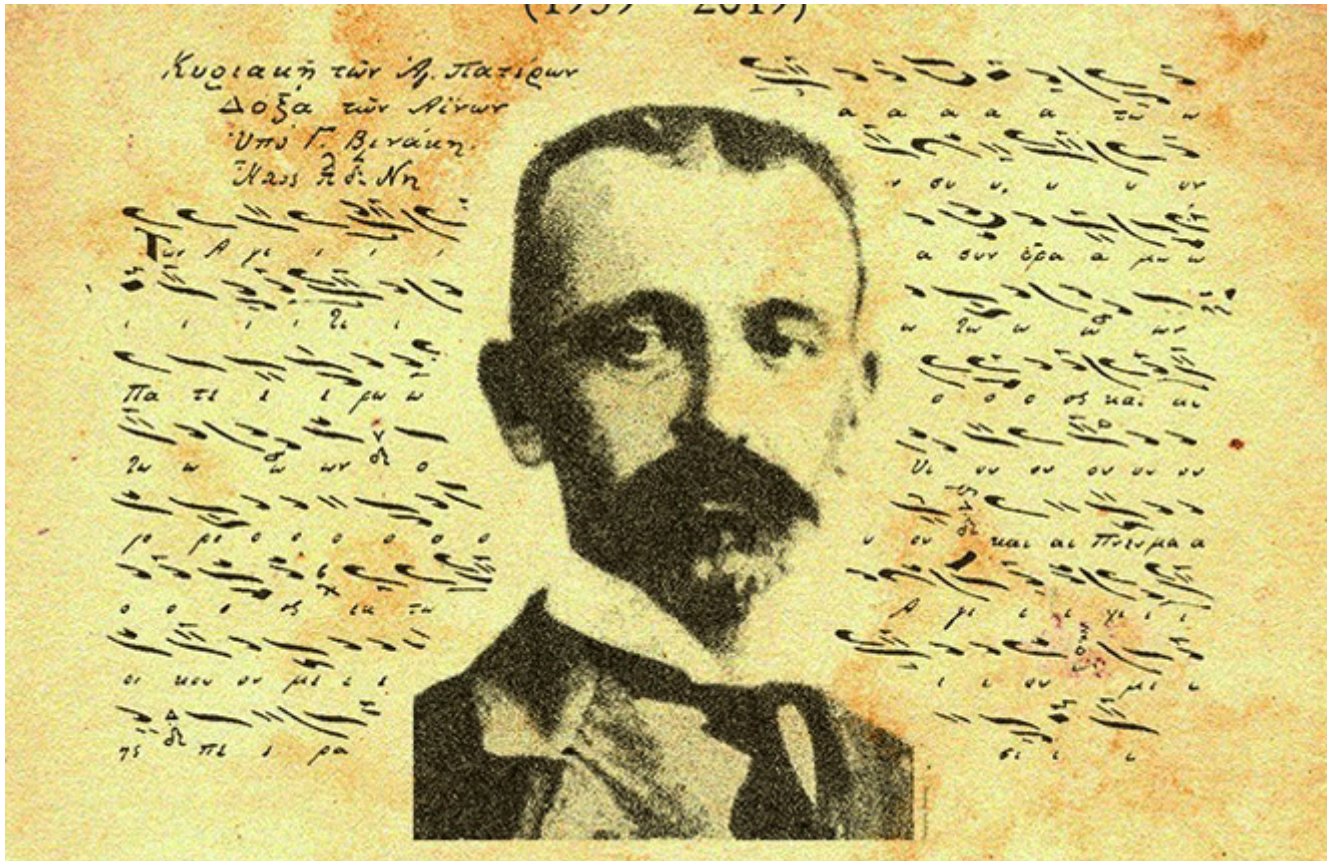 (1939 – 2019)
Κυριακὴ τῶν Ἁγ. Πατέρων
Δόξα τῶν Αἴνων
Ὑπὸ Γ. Βινάκη.
Ἦχος πλ δι Νη
Των Α γι ι ι ι
ι ι ι ι Γι ι
Πα τε ε ε ρω ω
τω ω ω ων ο
ρο ρο ο ο ο ο ο ο
ο ο ο ος εκ τω
οι κου ου με ε ε
ης πε ε ρα
α α α α α τω ω
ν συ υ υ υ υν
α συν δρα α μω ω
ω τω ω ω ων
ο ο ο ος και αι
Υι ου ου ου ου ου
υ ου και αι Πνευμα α
Α γι ι ι χι ι ι
ι ι ου με ε
σι ι ι